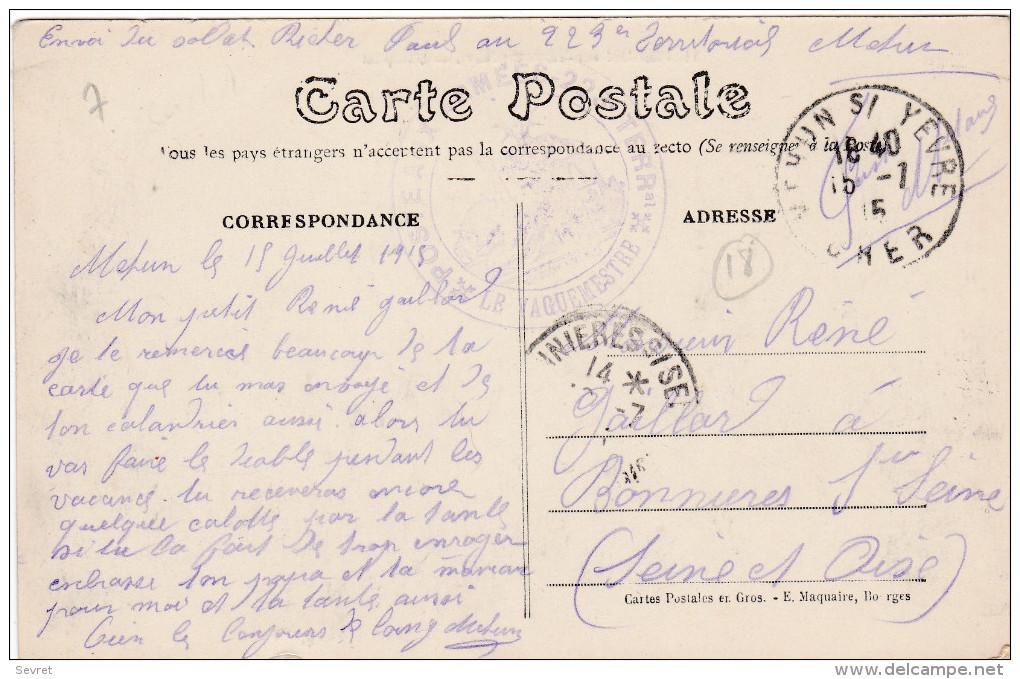 Envoi du soldat Richer Paul au 223e Territorial Mehun
7
Carte Postale
Tous les pays étrangers n'acceptent pas la correspondance au recto (Se renseigner à la Poste)
CORRESPONDANCE
ADRESSE
LE VAGUEMESTRE
MEHUN S/ YEVRE
18 40
15 -7
15
CHER
18
Mehun le 15 Juillet 1915
Mon petit René Gaillard
Je te remercie beaucoup de ta
carte que tu mas envoyé et de
ton calandrier aussi. alors tu
vas faire le diable pendant les
vacance. tu receveras encore
quelque calotte par ta tante
si tu la fait de trop enrager
enbrasse ton papa et ta maman
pour moi et ta tante aussi
Bien le bonjours de
INIERES S SEI
14 *
-7
Monsieur René
Gaillard à
Bonnieres s/ Seine
(Seine et Oise)
Cartes Postales en Gros. - E. Maquaire, Bourges
Sevret
http://www.delcampe.net